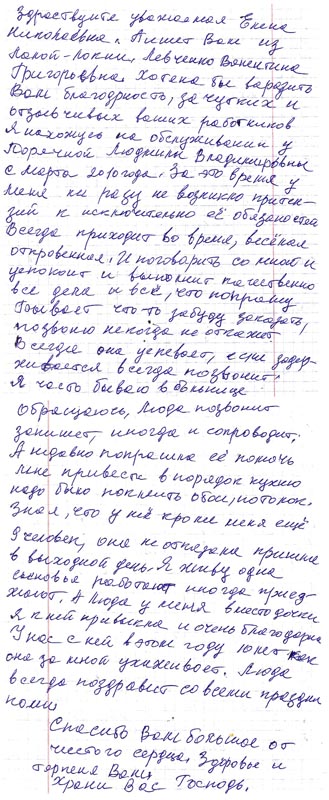 Здравствуйте уважаемая Елена
Николаевна. Пишет Вам из
Левченко Валентина
Григорьевна. Хотела бы выразить
Вам благодарность, за чутких и
отзывчивых ваших работников
Я нахожусь на обслуживании у
Поречной Людмилы Владимировны
с Марта 2010 года. За это время у
меня ни разу не возникло притен-
зий к исключительно её обязаностей
Всегда приходит во время, весёлая
откровенная. И поговарить со мной и
успокоит и выполнит качественно
все дела и всё, что попрашу
Бывает что-то забуду заказать,
позвоню некогда не откажет
Всегда она успевает, если задер-
живается всегда позвонит.
Я часто бываю в больнице
Обращаюсь, Люда позвонит
запишет, иногда и сопроводит.
А недавно попрашила её помочь
мне привести в порядок кухню
надо было поклеить обои, потолок.
Зная, что у неё кроме меня ещё
9 человек, она не отказала пришла
в выходной день. Я живу одна
сыновья работают иногда приез-
жают. А Люда у меня вместо дочки
Я к ней привыкла и очень благодарна
У нас с ней в этом году 10 лет как
она за мной ухаживает. Люда
всегда поздравит со всеми праздни
ками.
Спасибо Вам большое от
чистого сердца. Здоровье и
терпеня Вам.
Храни Вас Господь.